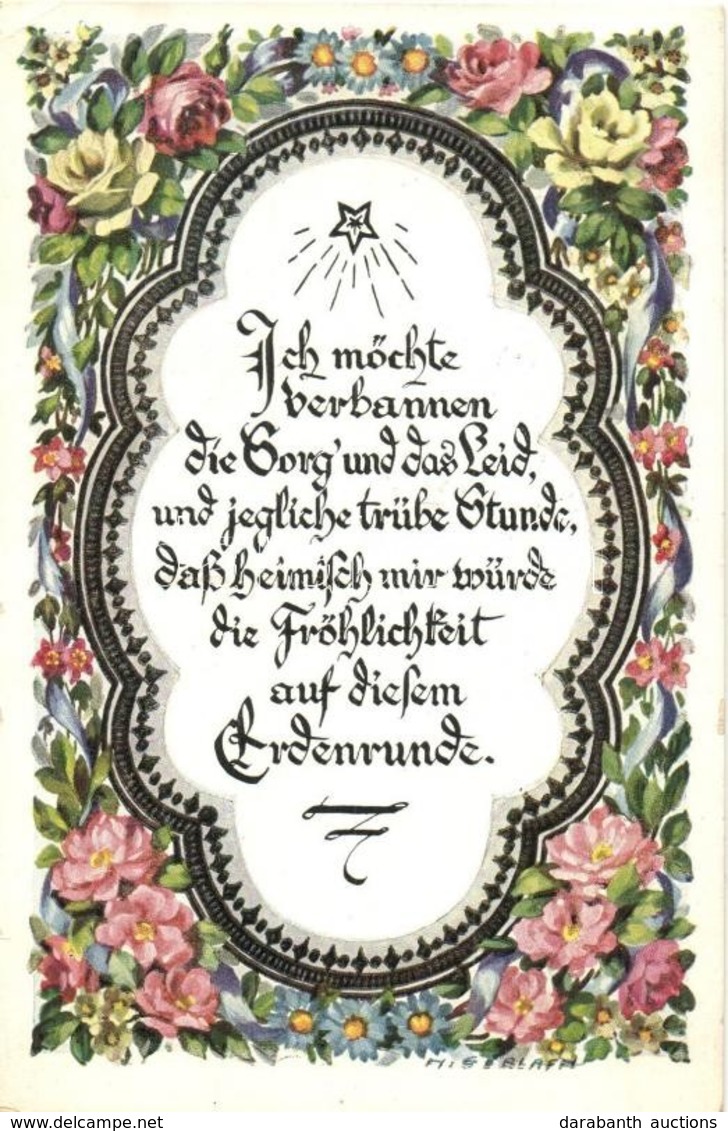 Ich möchte
verbannen
die Sorg' und das Leid,
und jegliche trübe Stunde,
daß heimisch mir würde
die Fröhlichkeit
auf diesem
Erdenrunde.
darabanth auctions